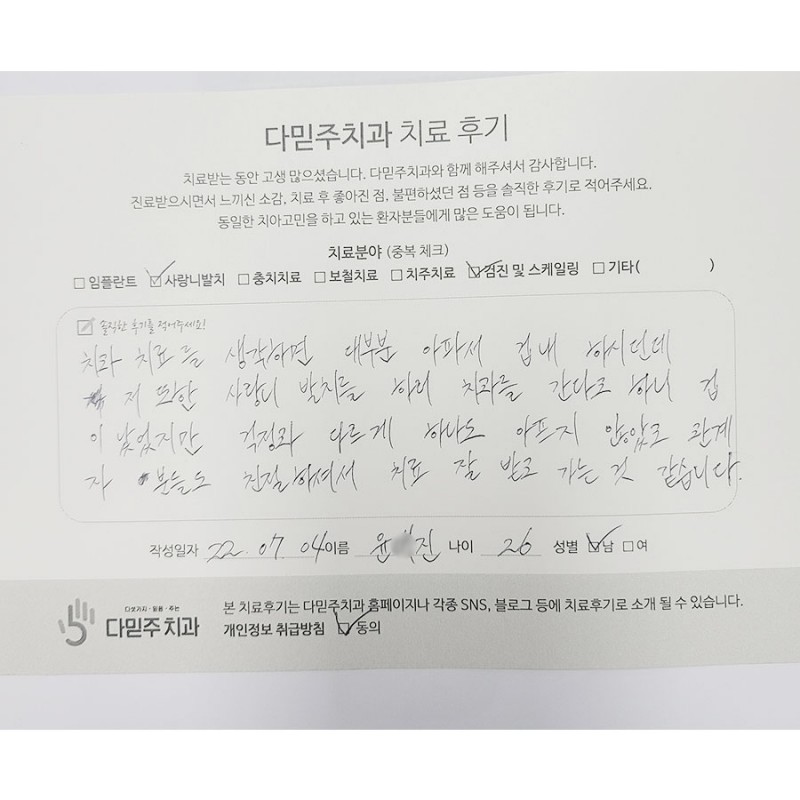 다믿주치과 치료 후기
치료받는 동안 고생 많으셨습니다. 다믿주치과와 함께 해주셔서 감사합니다.
진료받으시면서 느끼신 소감, 치료 후 좋아진 점, 불편하셨던 점 등을 솔직한 후기로 적어주세요.
동일한 치아고민을 하고 있는 환자분들에게 많은 도움이 됩니다.
치료분야 (중복 체크)
임플란트 사랑니발치 충치치료 보철치료 치주치료 검진 및 스케일링 기타( )
솔직한 후기를 적어주세요!
치과 치료를 생각하면 대부분 아파서 겁내 하시던데
저 또한 사랑니 발치를 하러 치과를 간다고 하니 겁
이 났었지만 걱정과 다르게 하나도 아프지 않았고 관계
자 분들도 친절하셔서 치료 잘 받고 가는 것 같습니다.
작성일자 22. 07. 04 이름 윤 진 나이 26 성별 남 여
다섯가지·믿음·주는
다믿주치과
본 치료후기는 다믿주치과 홈페이지나 각종 SNS, 블로그 등에 치료후기로 소개 될 수 있습니다.
개인정보 취급방침 동의